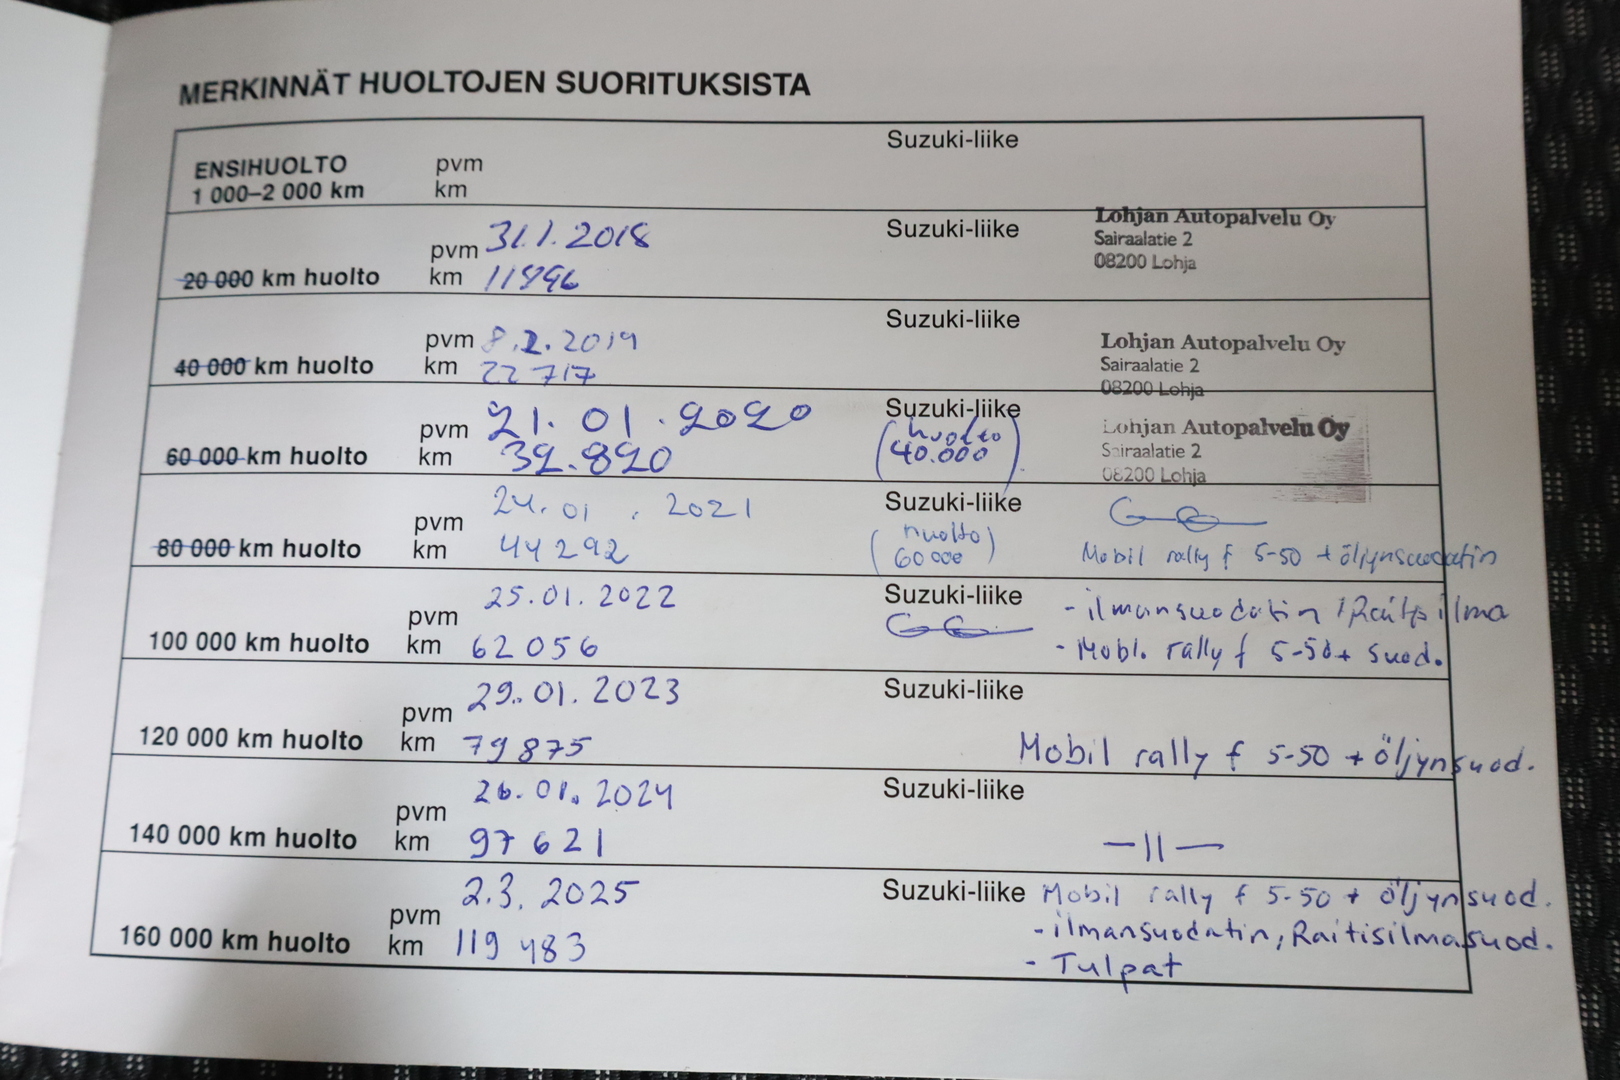 MERKINNÄT HUOLTOJEN SUORITUKSISTA
ENSIHUOLTO pvm Suzuki-liike
1 000–2 000 km km
pvm 31.1.2018 Suzuki-liike Lohjan Autopalvelu Oy
Sairaalatie 2
20 000 km huolto km 11896 08200 Lohja
pvm 8.2.2019 Suzuki-liike Lohjan Autopalvelu Oy
40 000 km huolto km 22 717 Sairaalatie 2
08200 Lohja
pvm 21.01.2020 Suzuki-liike Lohjan Autopalvelu Oy
60 000 km huolto km 32.820 (huolto Sairaalatie 2
40.000) 08200 Lohja
pvm 24.01.2021 Suzuki-liike
80 000 km huolto km 44 292 (huolto Mobil rally f 5-50 + öljynsuodatin
60 000)
pvm 25.01.2022 Suzuki-liike - ilmansuodatin / Raitisilma
100 000 km huolto km 62 056 - Mobi. rally f 5-50 + suod.
pvm 29.01.2023 Suzuki-liike
120 000 km huolto km 79 875 Mobil rally f 5-50 + öljynsuod.
pvm 26.01.2024 Suzuki-liike
140 000 km huolto km 97 621 —11—
pvm 2.3.2025 Suzuki-liike Mobil rally f 5-50 + öljynsuod.
160 000 km huolto km 119 483 - ilmansuodatin, Raitisilmasuod.
- Tulpat